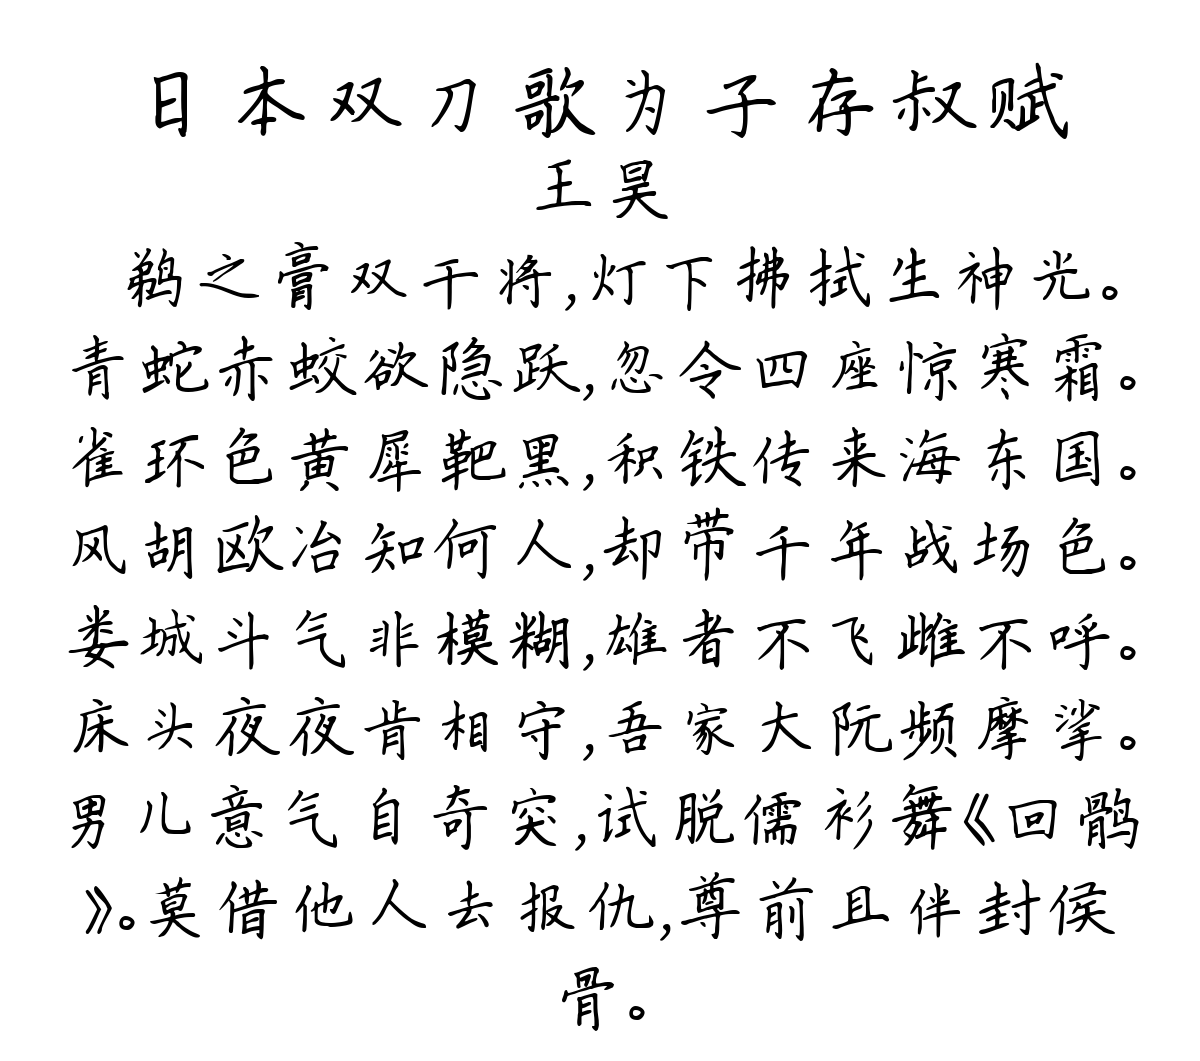 日本双刀歌为子存叔赋
王昊
鹈之膏双干将,灯下拂拭生神光。
青蛇赤蛟欲隐跃,忽令四座惊寒霜。
雀环色黄犀靶黑,积铁传来海东国。
风胡欧冶知何人,却带千年战场色。
娄城斗气非模糊,雄者不飞雌不呼。
床头夜夜肯相守,吾家大阮频摩挲。
男儿意气自奇突,试脱儒衫舞《回鹘
》。莫借他人去报仇,尊前且伴封侯
骨。